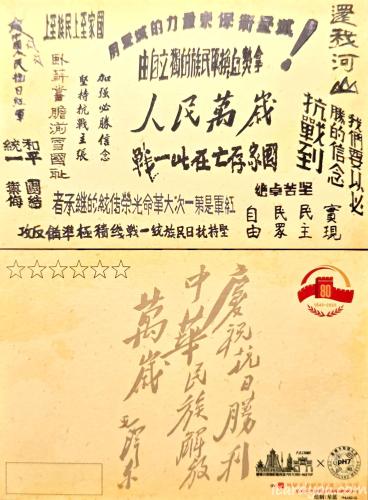 還我河山
我們要以必
勝的信念
抗戰到
拿熱血換爭民族的獨立自由
人民萬歲
國家存亡在此一戰
國家至上民族至上
加強必勝信念
堅持抗戰主張
臥薪嘗膽湔雪國恥
中國人民抗日紅軍
和平
統一
團結
禦侮
堅苦卓絕
實現
民主
民眾
自由
紅軍是第一次大革命光榮傳統的繼承者
堅持抗日民族統一戰線積極準備反攻
80
1945-2025
慶祝抗日勝利
中華民族解放
萬歲
毛澤東
×
pH7